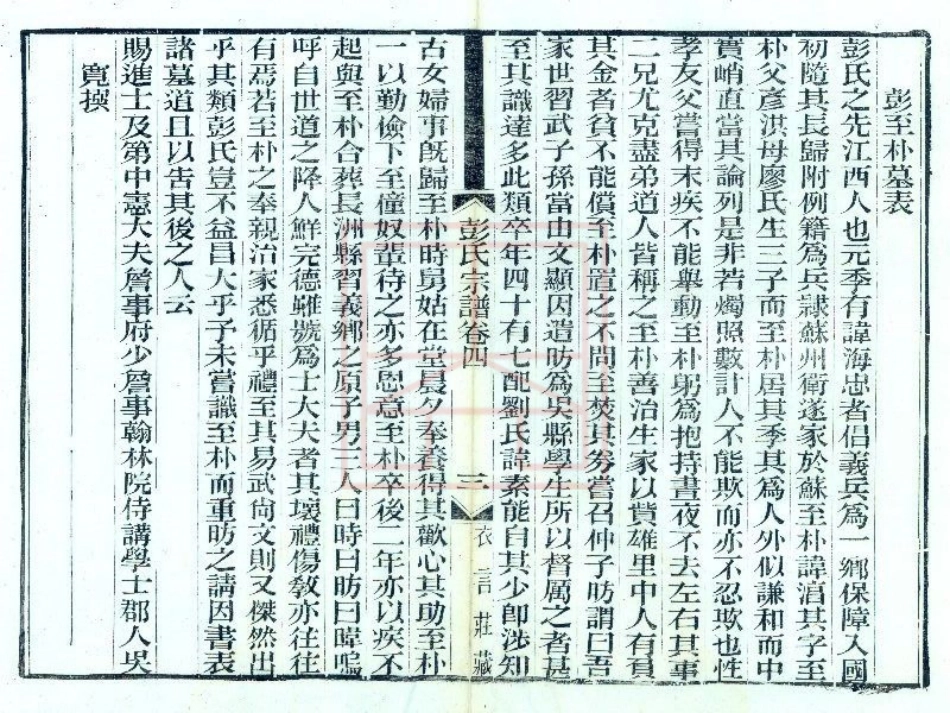 彭至朴墓表
彭氏之先江西人也元季有諱海忠者倡義兵爲一鄉保障入國
初隨其長歸附例籍爲兵隸蘇州衛遂家於蘇至朴諱淯其字至
朴父彥洪母廖氏生三子而至朴居其季其爲人外似謙和而中
實峭直當其論列是非若燭照數計人不能欺而亦不忍欺也性
孝友父嘗得末疾不能舉動至朴躬爲抱持晝夜不去左右其事
二兄尤克盡弟道人皆稱之至朴善治生家以貲雄里中人有負
其金者貧不能償至朴置之不問至焚其券嘗召仲子昉謂曰吾
家世習武子孫當由文顯因遣昉爲吳縣學生所以督厲之者甚
至其識達多此類卒年四十有七配劉氏諱素能自其少即涉知
彭氏宗譜卷四
三
衣言莊藏
古女婦事旣歸至朴時舅姑在堂晨夕奉養得其歡心其助至朴
一以勤儉下至僮奴輩待之亦多恩意至朴卒後二年亦以疾不
起與至朴合葬長洲縣習義鄉之原子男三人曰時曰昉曰暐嗚
呼自世道之降人鮮完德雖號爲士大夫者其壞禮傷敎亦往往
有焉若至朴之奉親治家悉循乎禮至其易武尙文則又傑然出
乎其類彭氏豈不益昌大乎予未嘗識至朴而重昉之請因書表
諸墓道且以告其後之人云
賜進士及第中憲大夫詹事府少詹事翰林院侍講學士郡人吳
寬撰